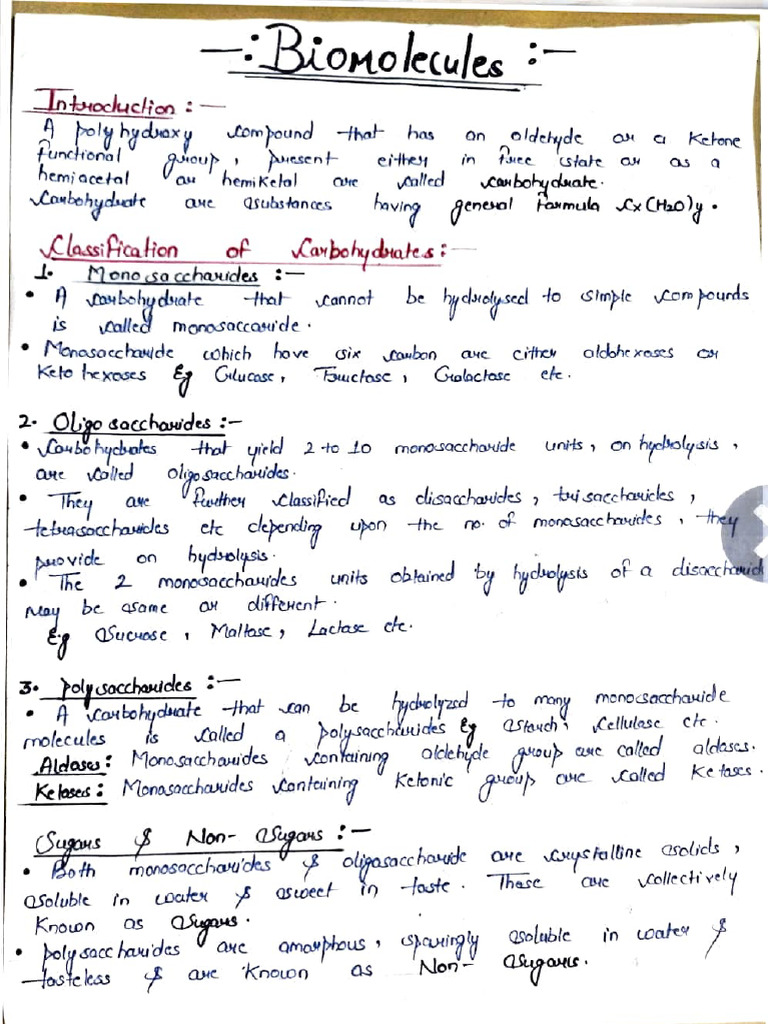 —: Biomolecules :—
Introduction :—
A polyhydroxy compound that has an aldehyde or a Ketone
functional group, present either in free state or as a
hemiacetal or hemiketal are called carbohydrate.
Carbohydrate are substances having general formula Cx(H2O)y.
Classification of Carbohydrates :—
1. Monosaccharides :—
• A carbohydrate that cannot be hydrolysed to simple compounds
is called monosaccaride.
• Monosaccharide which have six carbon are either aldohexoses or
Keto hexoses Eg Glucose, Fructose, Galactose etc.
2. Oligosaccharides :—
• Carbohydrates that yield 2 to 10 monosaccharide units, on hydrolysis,
are called oligosaccharides.
• They are further classified as disaccharides, trisaccharides,
tetrasaccharides etc depending upon the no. of monosaccharides, they
provide on hydrolysis.
• The 2 monosaccharides units obtained by hydrolysis of a disaccharid
may be same or different.
E.g Sucrose, Maltose, Lactose etc.
3. Polysaccharides :—
• A carbohydrate that can be hydrolyzed to many monosaccharide
molecules is called a polysaccharides Eg Starch, Cellulose etc.
Aldoses: Monosaccharides containing aldehyde group are called aldoses.
Ketoses: Monosaccharides containing Ketonic group are called Ketoses.
Sugars & Non-Sugars :—
• Both monosaccharides & oligosaccharide are crystalline solids,
soluble in water & sweet in taste. These are collectively
Known as Sugars.
• polysaccharides are amorphous, sparingly soluble in water &
tasteless & are Known as Non-Sugars.